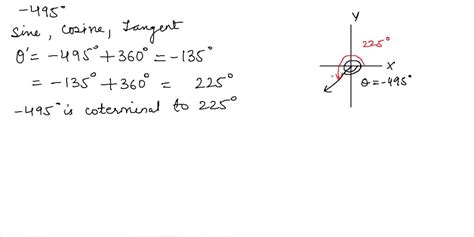 -495°
Sine, Cosine, Tangent
θ' = -495° + 360° = -135°
= -135° + 360° = 225°
-495° is coterminal to 225°
Y
225°
X
θ = -495°